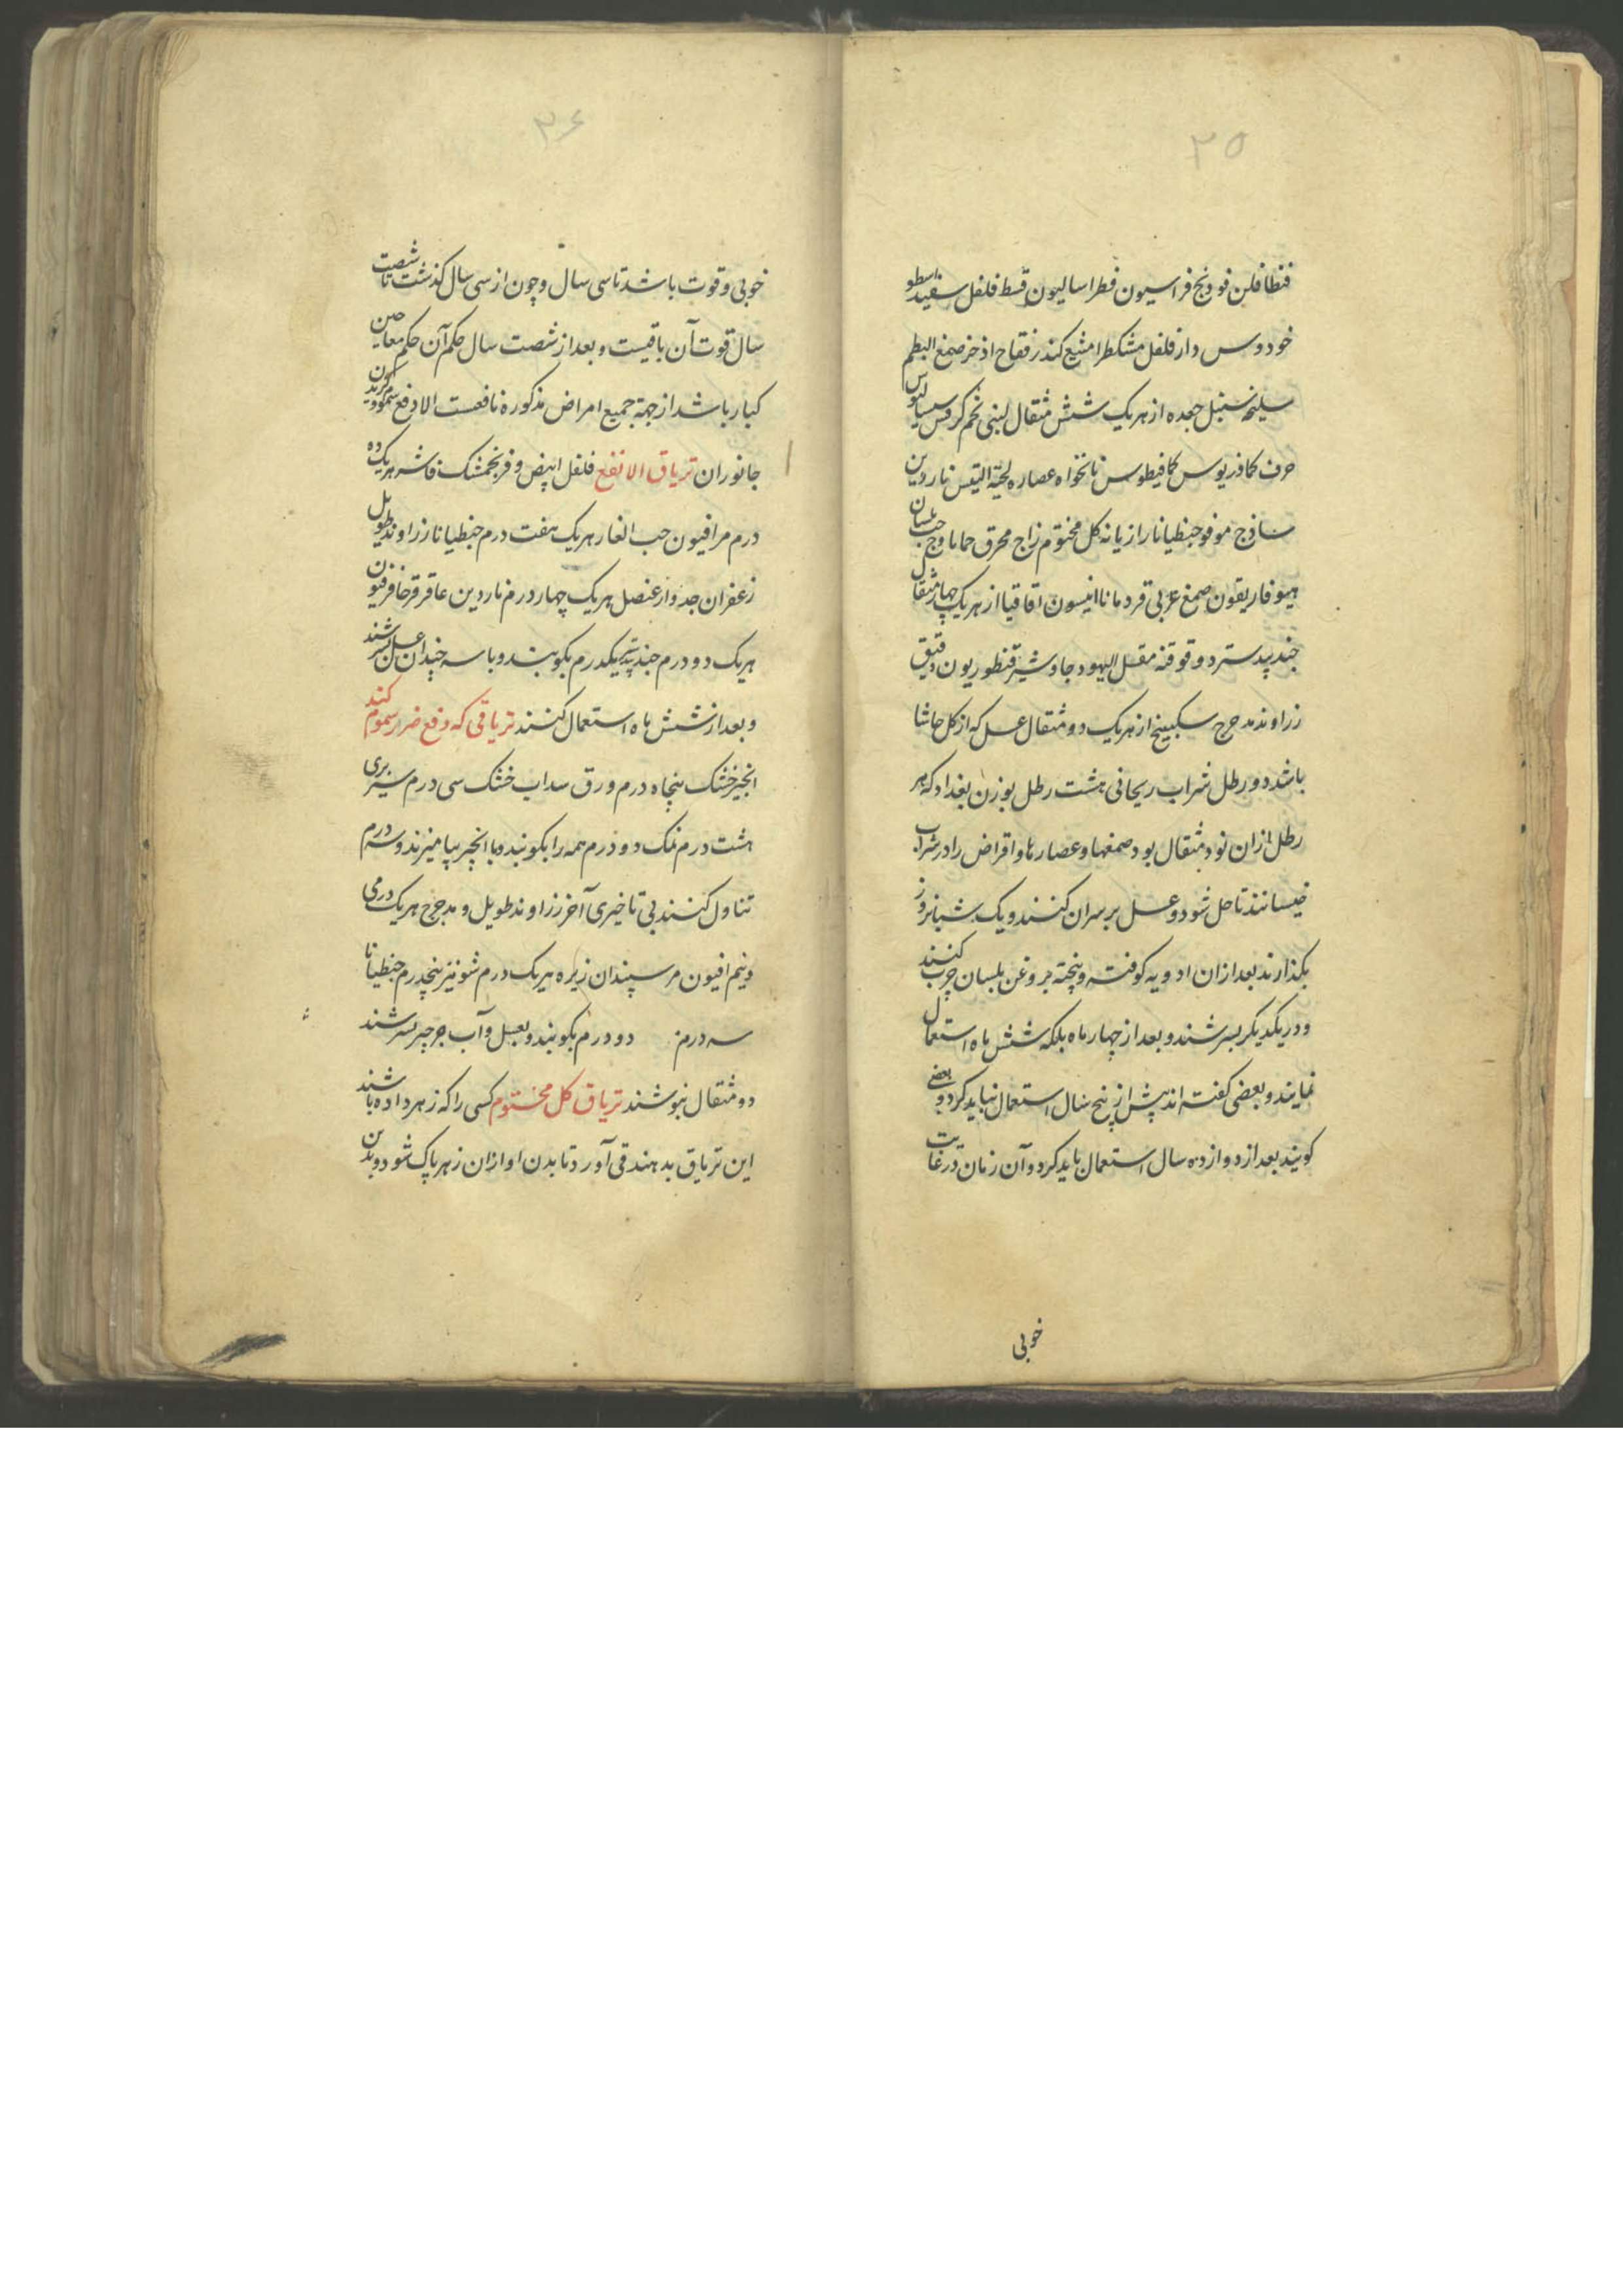 ۳۵
فنطافلن فودنج فراسیون فطراسالیون قسط فلفل سفید اسطو
خودوس دارفلفل مشکطرامشیع کندر فقاح اذخر صمغ البطم
سلیخه سنبل جعده از هریک شش مثقال لبنی تخم کرفس سیسالیوس
حرف کمادریوس کمافیطوس نانخواه عصاره لحیة التیس ناردین
ساذج مو فو جنطیانا رازیانه کل مختوم زاج محرق حماما وج حب بلسان
هیوفاریقون صمغ عربی قردمانا انیسون اقاقیا از هریک چهار مثقال
جندبیدستر دوقو قنه مقل الیهود جاوشیر قنطوریون دقیق
زراوند مدحرج سکبینج از هریک دو مثقال عسل که از کل حاشا
باشد دو رطل شراب ریحانی هشت رطل بوزن بغداد که هر
رطل ازان نود مثقال بود صمغها و عصارها و اقراض را در شراب
خیسانند تا حل شود و عسل بر سران کنند و یک شبانروز
بکذارند بعد ازان ادویه کوفته و پخته بروغن بلسان چرب کنند
و در یکدیکر بسرشند و بعد از چهار ماه بلکه شش ماه استعمال
نمایند و بعضی کفته اند پیش از پنج سال استعمال نباید کرد و بعضی
کویند بعد از دوازده سال استعمال باید کرد و آن زمان در غایت
خوبی
۳۶
خوبی و قوت باشد تا سی سال و چون از سی سال کذشت تا شصت
سال قوت آن باقیست و بعد از شصت سال حکم آن حکم معاجین
کبار باشد از جهة جمیع امراض مذکوره نافعست الا دفع سموم و کزیدن
جانوران تریاق الانفع فلفل ابیض و فرنجمشک فاشه هریک ده
درم مر افیون حب الغار هریک هفت درم جنطیانا زراوند طویل
زعفران جدوار عنصل هریک چهار درم ناردین عاقرقرحا فرفیون
هریک دو درم جندبیدستر یکدرم بکوبند و با سه چندان عسل بسرشند
و بعد از شش ماه استعمال کنند تریاقی که دفع ضرر سموم کند
انجیر خشک پنجاه درم ورق سداب خشک سی درم سیر بری
هشت درم نمک دو درم همه را بکوبند و با انجیر بیامیزند و سه درم
تناول کنند بی تاخیری آخر زراوند طویل و مدحرج هریک درمی
و نیم افیون مر سپندان زیره هریک درم شونیز پنجدرم جنطیانا
سه درم دو درم بکوبند و بعسل و آب جرجیر بسرشند
دو مثقال بنوشند تریاق کل مختوم کسی را که زهر داده باشند
این تریاق بدهند قی آورد تا بدن او ازان زهر پاک شود و بدین